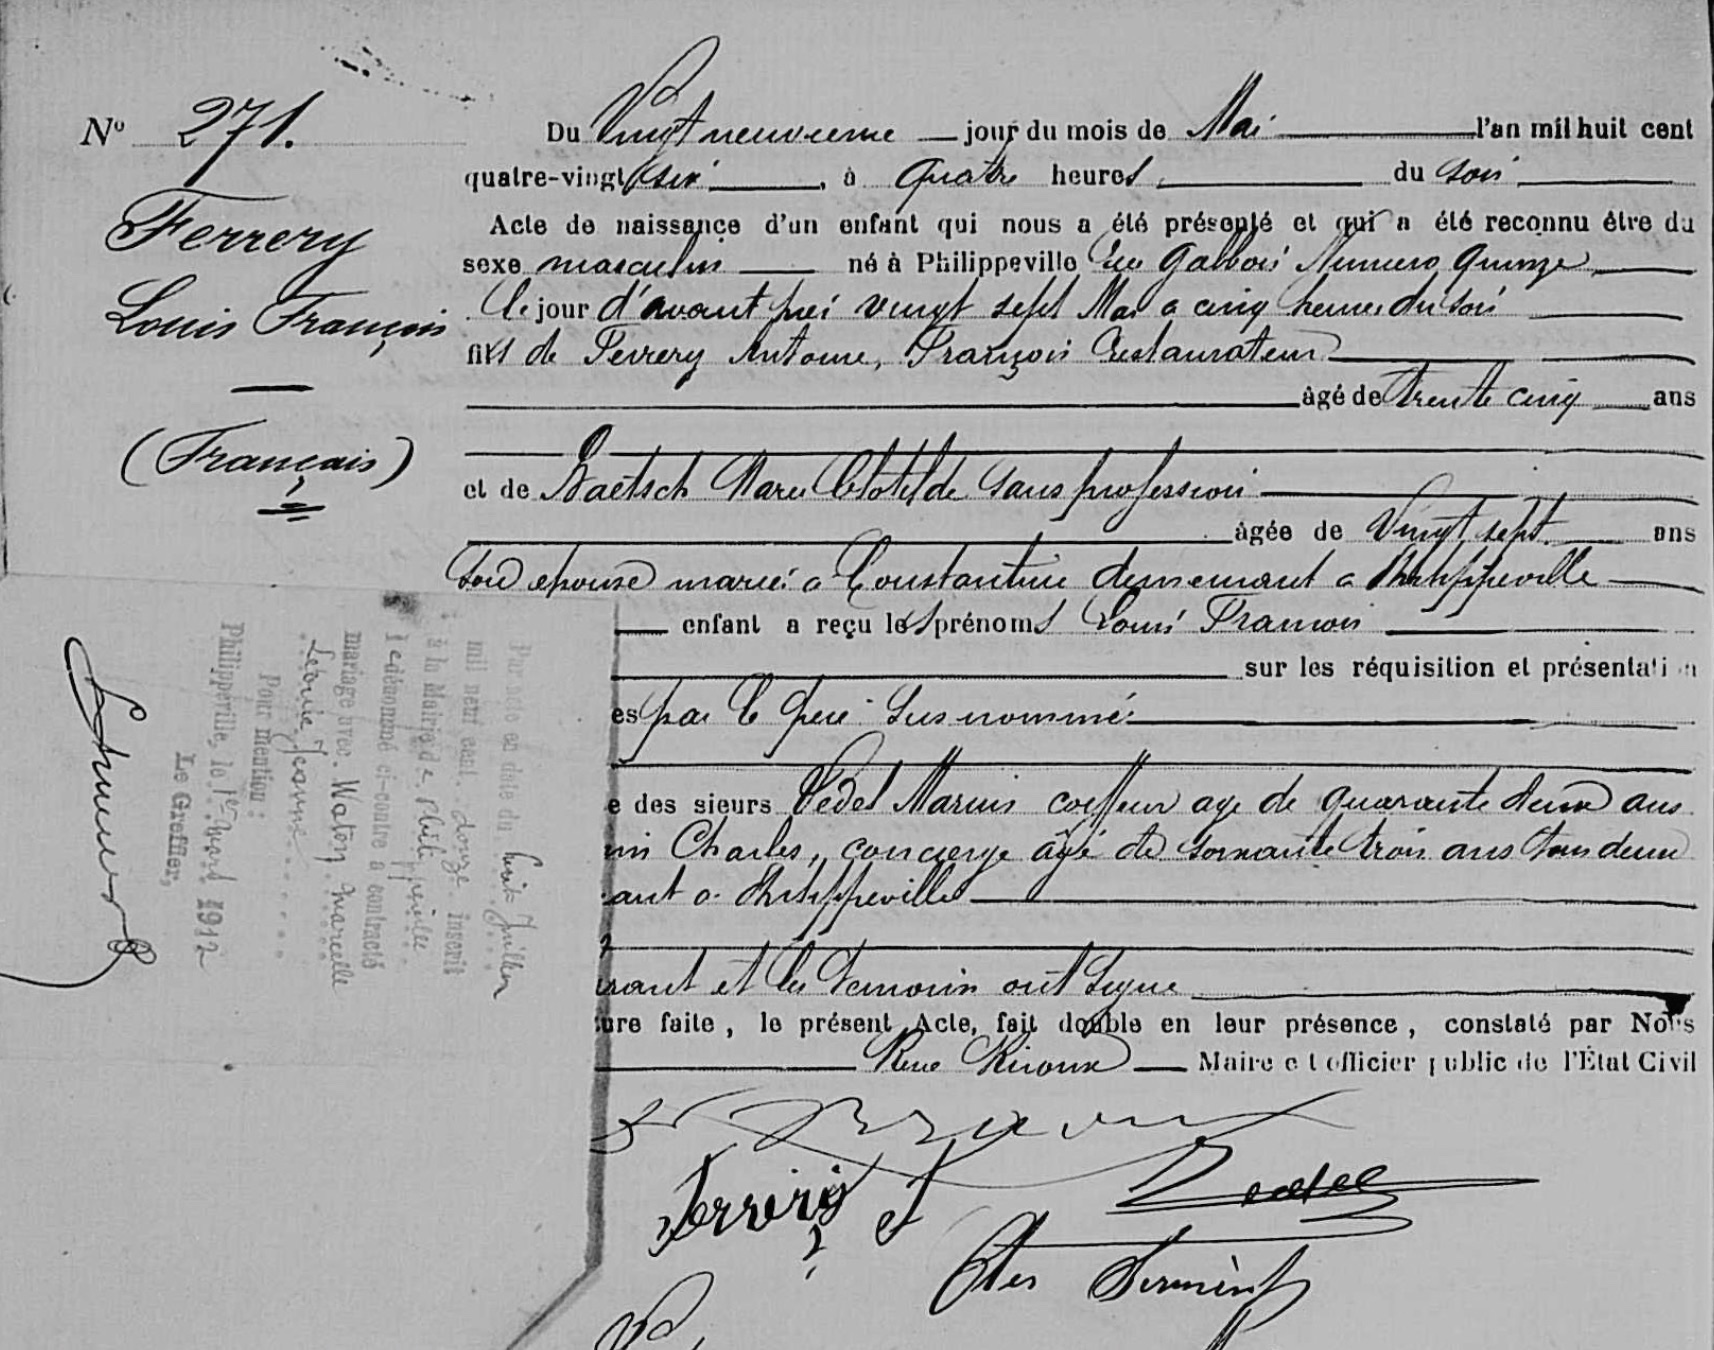 No 271.
Ferrery
Louis François
(Français)
Du Vingt neuvieme jour du mois de Mai l'an mil huit cent
quatre-vingt six, à quatre heures du soir
Acte de naissance d'un enfant qui nous a été présenté et qui a été reconnu être du
sexe masculin né à Philippeville rue Galbois Numero quinze
le jour d'avant hier vingt sept Mai a cinq heures du soir
fils de Ferrery Antoine, François restaurateur
âgé de trente cinq ans
et de Baetsch Marie Clotilde sans profession
âgée de vingt sept ans
son epouse mariés a Constantine demeurant a Philippeville
enfant a reçu les prénoms Louis François
sur les réquisition et présentation
es par le père susnommé
e des sieurs Vedel Marius coiffeur age de quarante deux ans
in Charles, concierge âgé de soixante trois ans tous deux
ant a Philippeville
rant et les temoins ont signé
ure faite, le présent Acte, fait double en leur présence, constaté par Nous
Maire et officier public de l'État Civil
Vedel
Par acte en date du huit Juillet
mil neuf cent douze inscrit
à la Mairie de Philippeville
le dénommé ci-contre a contracté
mariage avec Marcelle
Jeanne
Pour mention:
Philippeville, le 1912
Le Greffier,